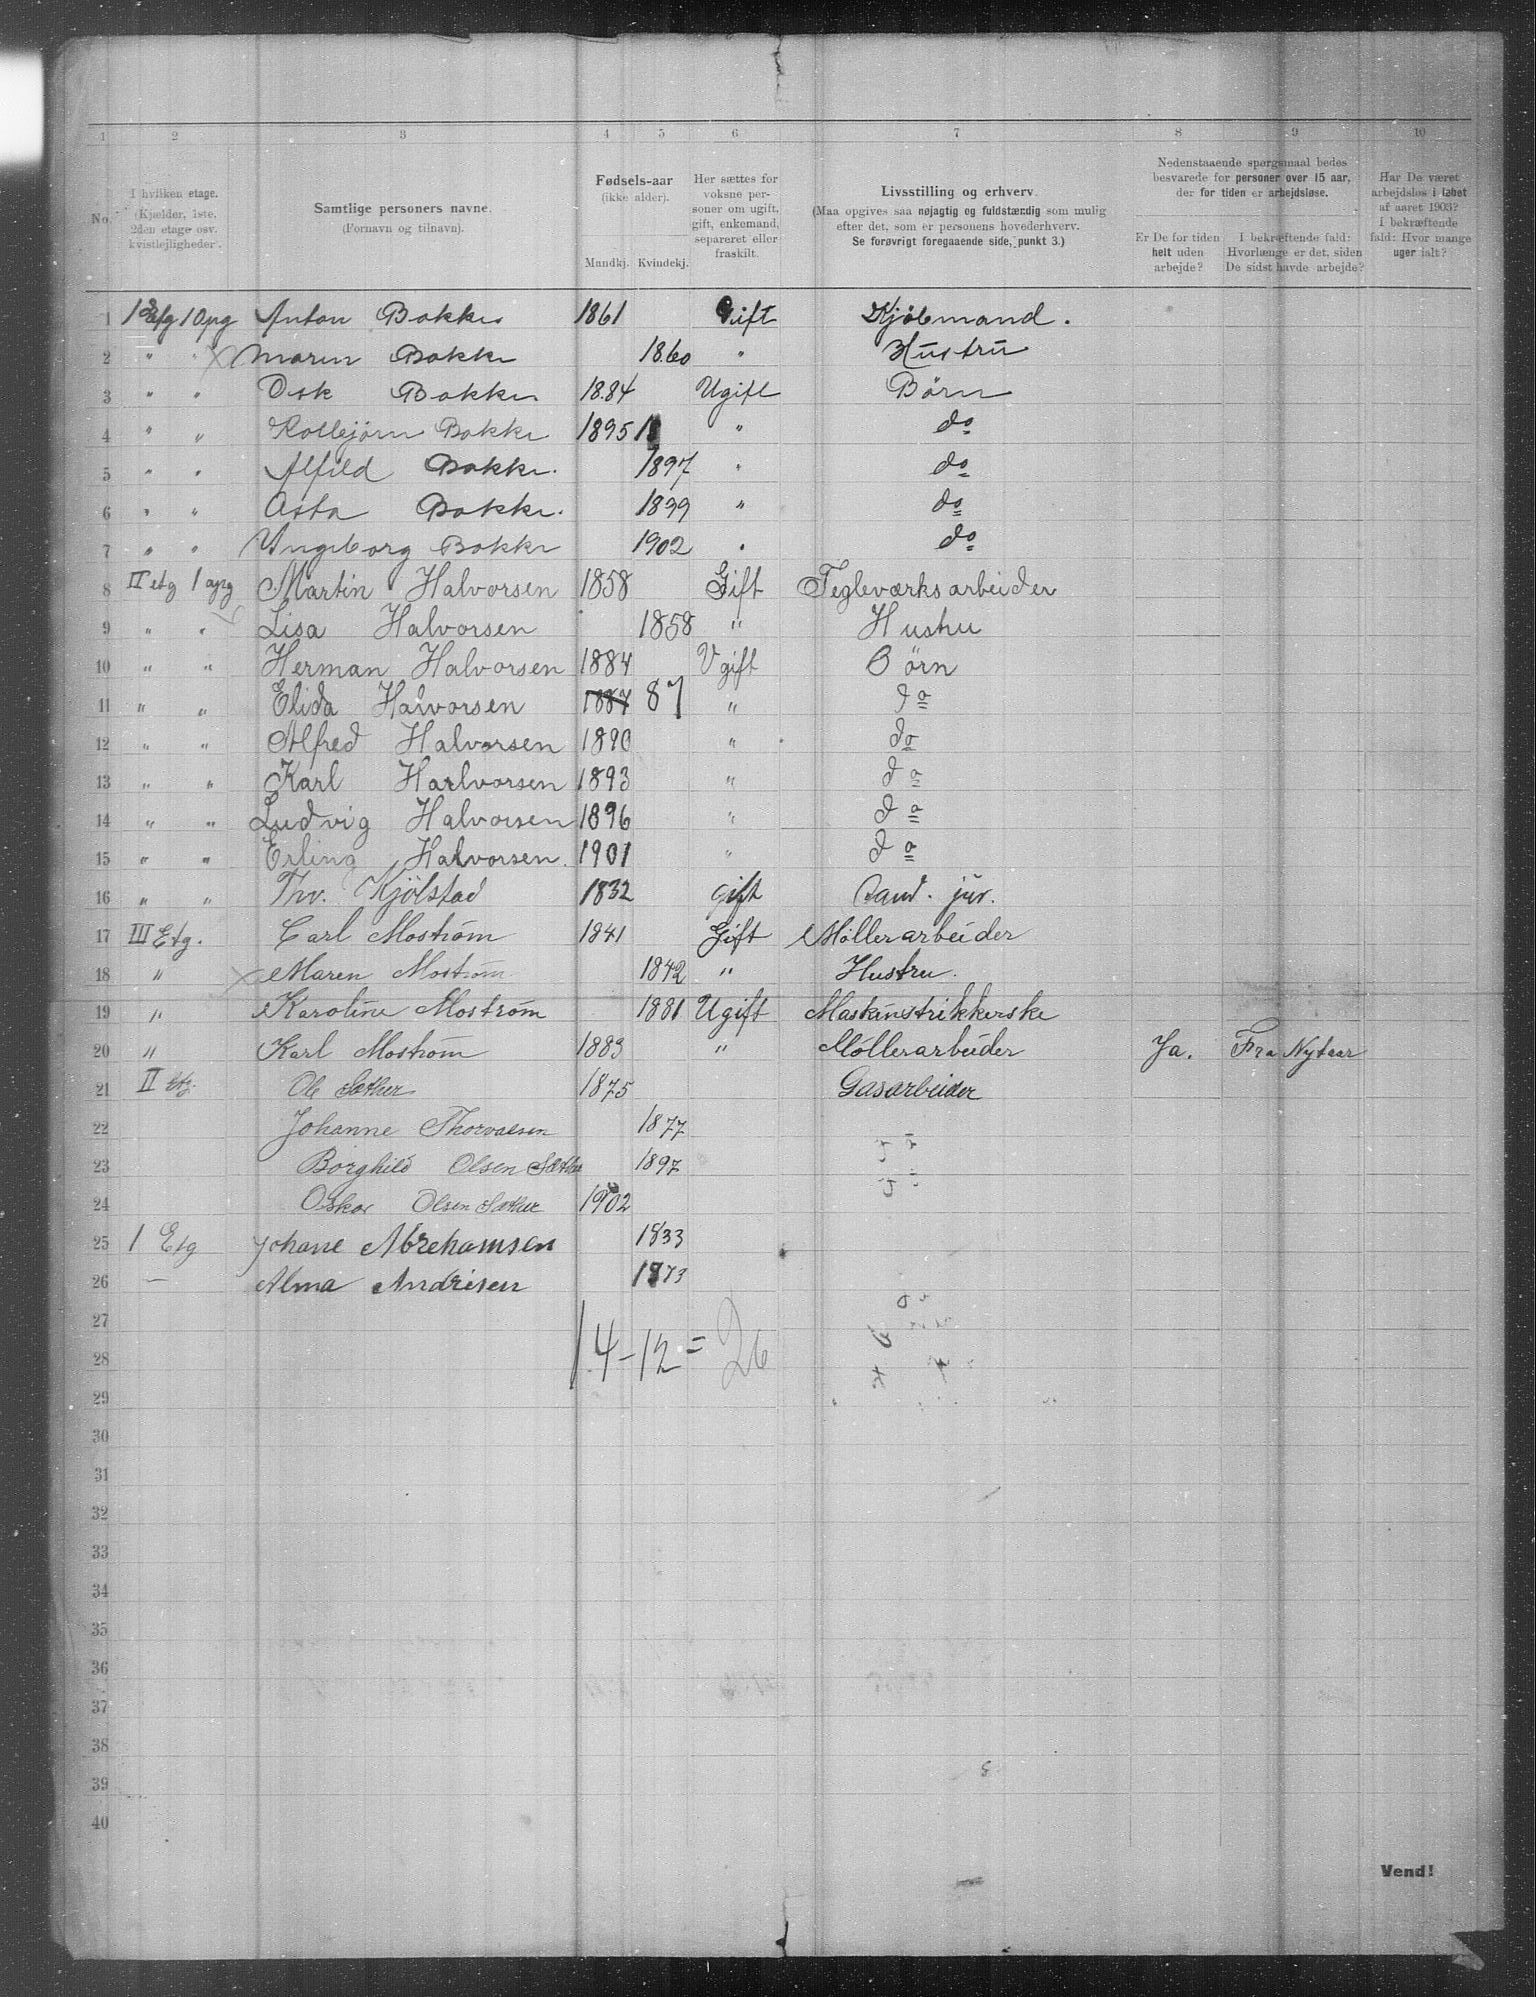 1 2 3 4 5 6 7 8 9 10
No.
I hvilken etage.
(Kjælder, 1ste, 2den etage osv. kvistlejligheder).
Samtlige personers navne.
(Fornavn og tilnavn).
Fødsels-aar
(ikke alder).
Mandkj. Kvindekj.
Her sættes for voksne personer om ugift, gift, enkemand, separeret eller fraskilt.
Livsstilling og erhverv.
(Maa opgives saa nøjagtig og fuldstændig som mulig
efter det, som er personens hovederhverv.
Se forøvrigt foregaaende side, punkt 3.)
Nedenstaaende spørgsmaal bedes
besvarede for personer over 15 aar,
der for tiden er arbejdsløse.
Er De for tiden helt uden arbejde?
I bekræftende fald: Hvorlænge er det, siden De sidst havde arbejde?
Har De været arbejdsløs i løbet af aaret 1903?
I bekræftende fald: Hvor mange uger ialt?
1 1 Etg 1 Opg Anton Bakke 1861 Gift Kjøbmand.
2 " " Maren Bakke 1860 " Hustru
3 " " Osk Bakke 1884 Ugift Børn
4 " " Bakke 1895 " do
5 " " Alfild Bakke. 1897 " do
6 " " Asta Bakke. 1899 " do
7 " " Ingeborg Bakke 1902 " do
8 II etg 1 opg Martin Halvorsen 1858 Gift Tegleværksarbeider
9 " " Lisa Halvorsen 1858 " Hustru
10 " " Herman Halvorsen 1884 Ugift Børn
11 " " Elida Halvorsen 1887 87 " do
12 " " Alfred Halvorsen 1890 " do
13 " " Karl Harlvorsen 1893 " do
14 " " Ludvig Halvorsen 1896 " do
15 " " Erling Halvorsen. 1901 " do
16 " " Thv. Kjølstad 1832 gift Cand. jur.
17 III Etg. Carl Mostrøm 1841 Gift Møllerarbeider
18 " Maren Mostrøm 1842 " Hustru.
19 " Karoline Mostrøm 1881 Ugift Maskinstrikkerske
20 " Karl Mostrøm 1883 " Møllerarbeider Ja. Fra Nytaar
21 II etg. Ole Sæther 1875 Gasarbeider
22 Johanne Thorvalsen 1877
23 Borghild Olsen Sæther 1897
24 Oskar Olsen Sæther 1902
25 1 Etg Johane Abrehamsen 1833
26 — Alma Andrisen 1873
27
14-12=26
28
29
30
31
32
33
34
35
36
37
38
39
40
Vend!